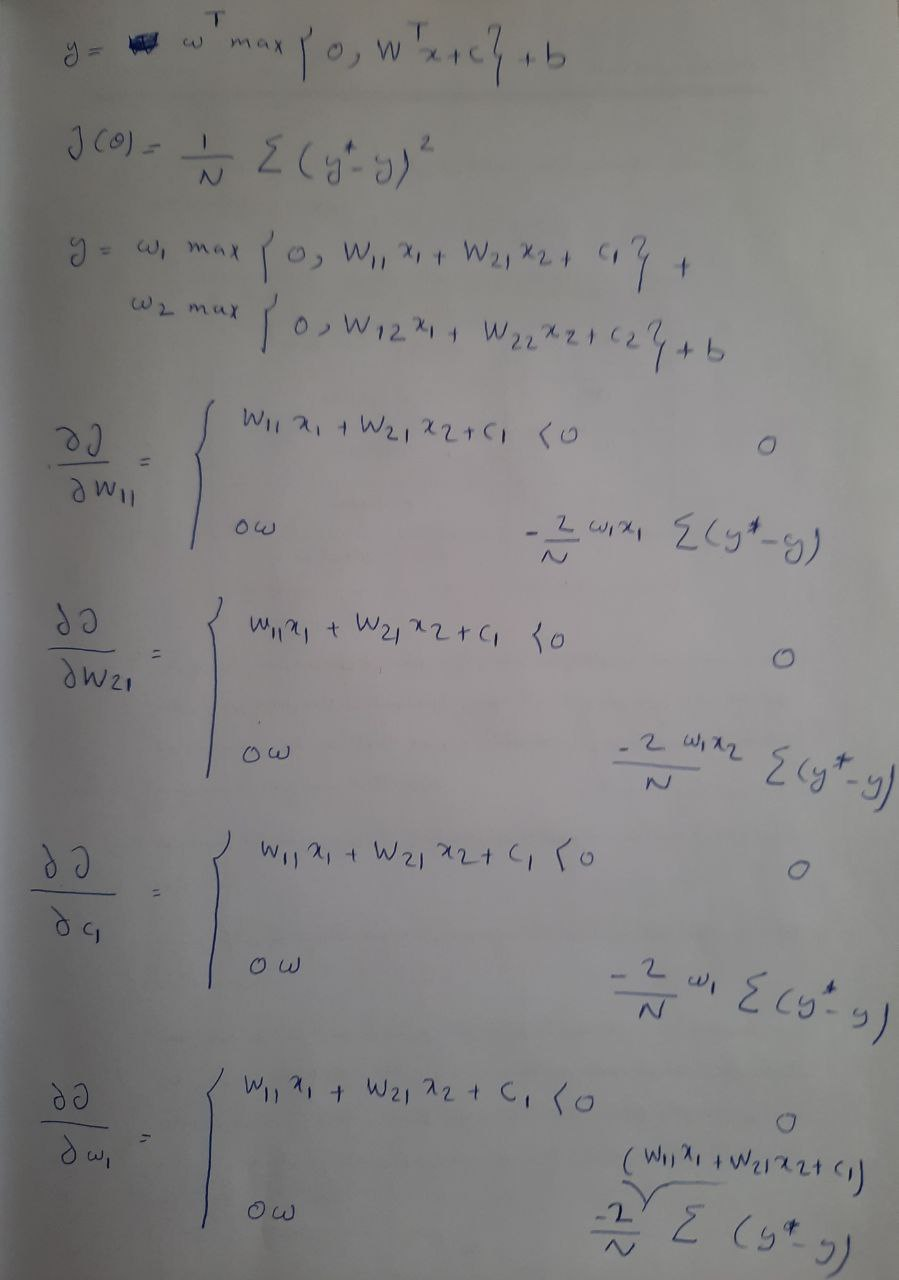 y = w^T max { 0, W^T x + c } + b
J(θ) = 1/N Σ (y* - y)^2
y = w₁ max { 0, W₁₁ x₁ + W₂₁ x₂ + c₁ } +
w₂ max { 0, W₁₂ x₁ + W₂₂ x₂ + c₂ } + b
∂J/∂W₁₁ = { W₁₁ x₁ + W₂₁ x₂ + c₁ < 0 0
ow -2/N w₁x₁ Σ(y* - y)
∂J/∂W₂₁ = { W₁₁x₁ + W₂₁ x₂ + c₁ < 0 0
ow -2/N w₁x₂ Σ(y* - y)
∂J/∂c₁ = { W₁₁ x₁ + W₂₁ x₂ + c₁ < 0 0
ow -2/N w₁ Σ(y* - y)
∂J/∂w₁ = { W₁₁ x₁ + W₂₁ x₂ + c₁ < 0 0
(W₁₁x₁ + W₂₁x₂ + c₁)
ow -2/N Σ (y* - y)